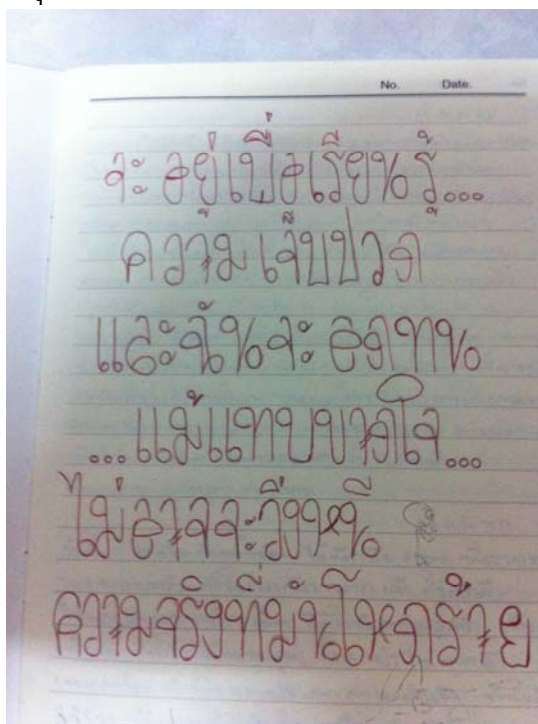 No. Date.
จะอยู่เพื่อเรียนรู้...
ความเจ็บปวด
และฉันจะอดทน
...แม้แทบขาดใจ...
ไม่อาจจะวิ่งหนี
ความจริงที่มันโหดร้าย